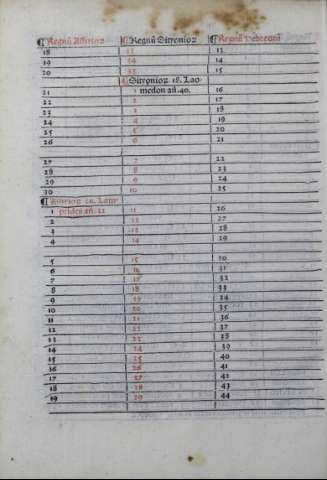 ¶ Regnū Assirioꝝ ¶ Regnū Sitionioꝝ ¶ Regnū Hebreoꝝ
18 13
19 14 14
20 15 15
¶ Sitionioꝝ 18. Lao
21 1 medon añ. 40. 16
22 2 17
23 3 18
24 4 19
25 5 20
26 6 21
27 7 22
28 8 23
29 9 24
30 10 25
1 11 26
2 12 27
3 13 28
4 14 29
5 15 30
6 16 31
7 17 32
8 18 33
9 19 34
10 20 35
11 21 36
12 22 37
13 23 38
14 24 39
15 25 40
16 26 41
17 27 42
18 28 43
19 29 44